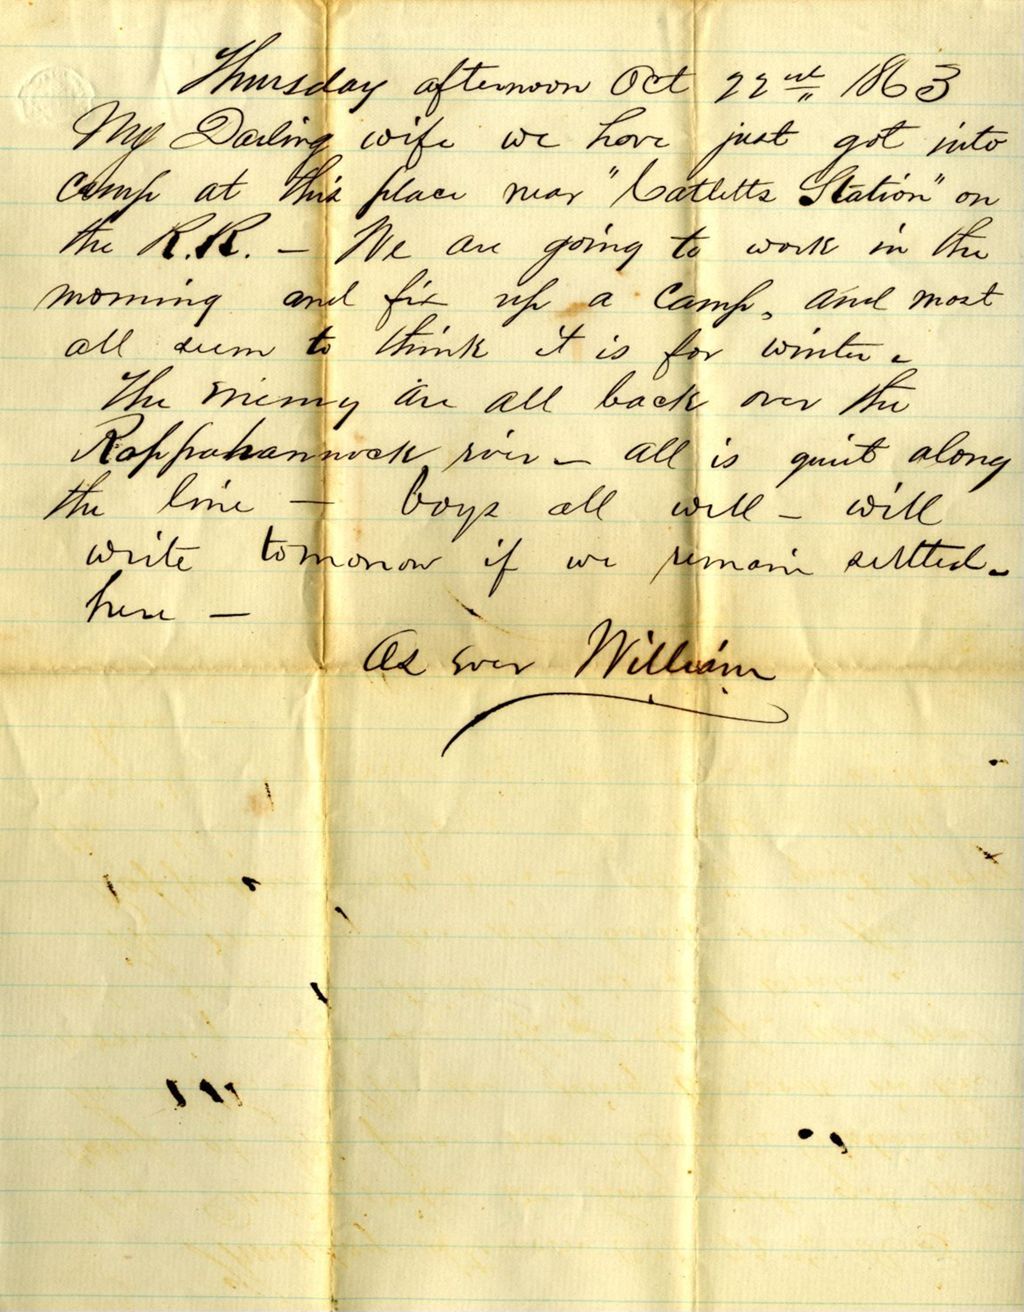 Thursday afternoon Oct 22nd 1863
My Darling wife we have just got into
camp at this place near "Catletts Station" on
the R.R. – We are going to work in the
morning and fix up a camp, and most
all seem to think it is for winter.
The enemy are all back over the
Rappahannock river – all is quiet along
the line – boys all well – will
write tomorrow if we remain settled.
here –
As ever William